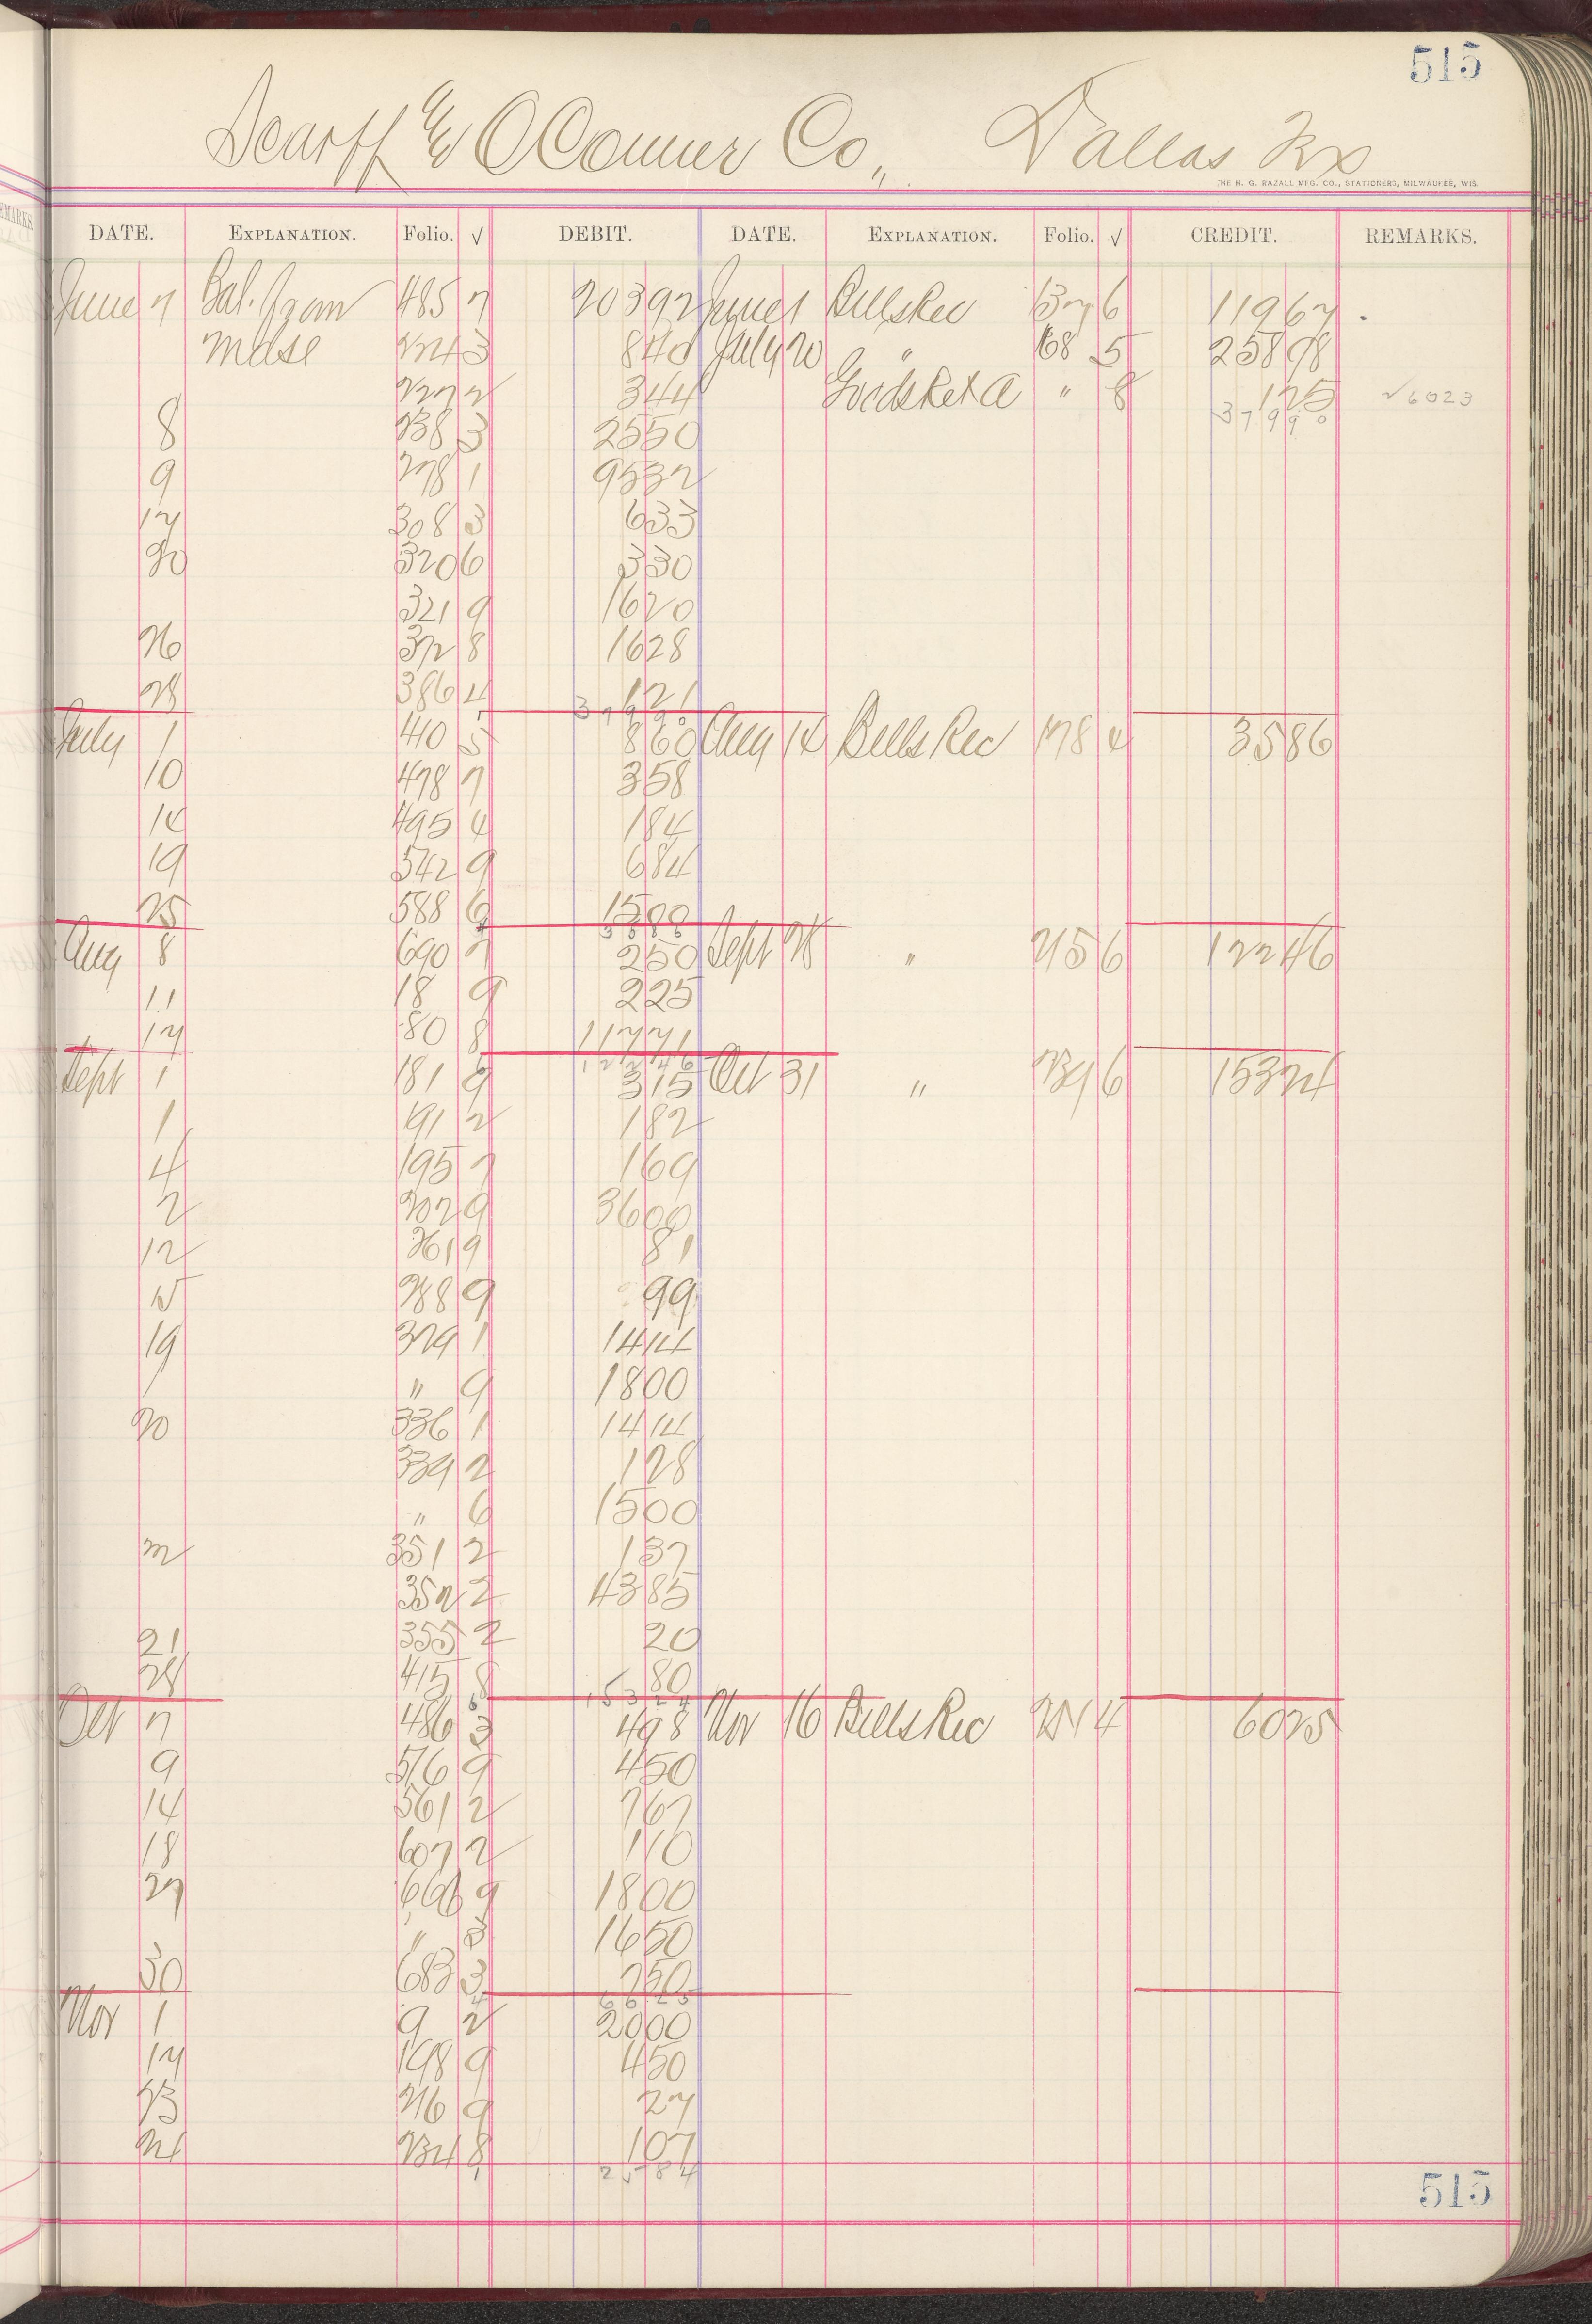 515
Scarff & OConner Co,, Dallas Tex
THE H. G. RAZALL MFG. CO., STATIONERS, MILWAUKEE, WIS.
DATE. EXPLANATION. Folio. √ DEBIT. DATE. EXPLANATION. Folio. √ CREDIT. REMARKS.
June 7 Bal. from 485 7 20392 June 1 Bills Rec 137 6 11967
Mdse 224 3 840 July 20 " 168 5 25898
227 2 344 Goods Ret d " 8 125 √6023
8 238 3 2550 37990
9 278 1 9532
17 308 3 633
20 320 6 330
321 9 1620
26 372 8 1628
28 386 4 121
37990
July 1 410 5 860 Aug 14 Bills Rec 178 4 3586
10 478 7 358
14 495 4 184
19 542 9 684
25 588 6 1500
3586
Aug 8 690 7 250 Sept 28 " 215 6 12246
11 18 9 225
17 80 8 11771
12246
Sept 1 181 9 315 Oct 31 " 239 6 15324
1 191 2 182
4 195 7 169
2 202 9 3600
12 261 9 81
15 288 9 99
19 329 1 1414
" 9 1800
20 336 1 1414
339 2 128
" 6 1500
351 2 137
352 2 4385
21 355 2 20
28 415 8 80
15324
Oct 7 486 3 498 Nov 16 Bills Rec 4 6025
9 516 9 450
14 561 2 767
18 607 2 110
27 666 9 1800
" 3 1650
30 683 3 750
6025
Nov 1 9 2 2000
17 198 9 450
23 216 9 27
24 234 8 107
2584
515